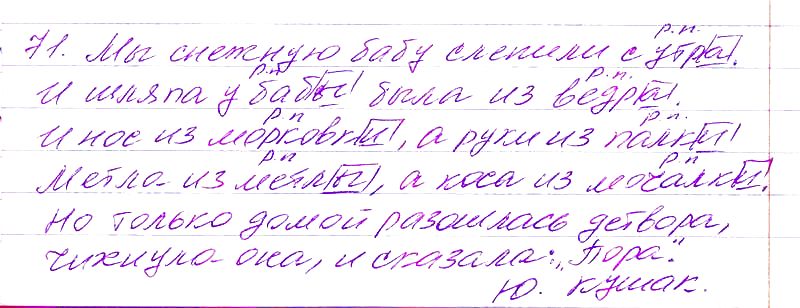 71. Мы снежную бабу слепили с утра.
р.п.
И шляпа у бабы была из ведра.
р.п. р.п.
И нос из морковки, а руки из палки!
р.п р.п.
Метла из метлы, а коса из мочалки.
р.п р.п
Но только домой разошлась детвора,
чихнула она, и сказала: „Пора".
Ю. Кушак.